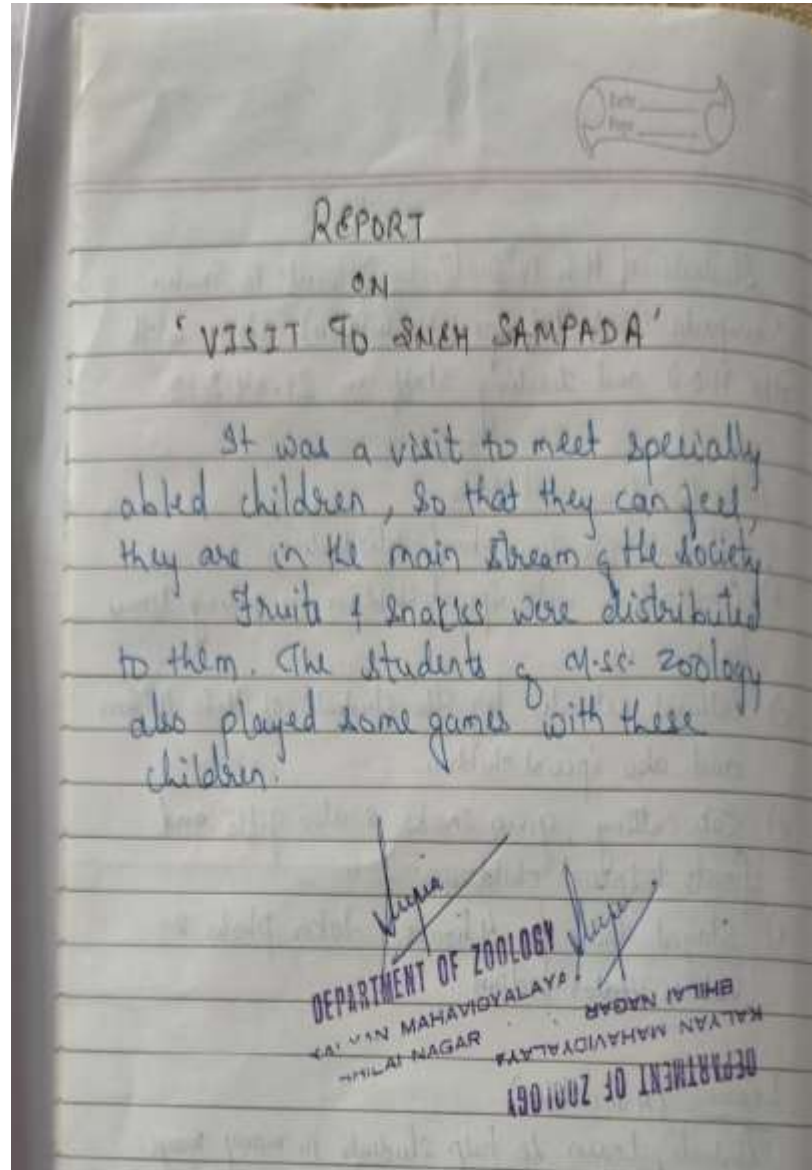 Date
Page
REPORT
ON
'VISIT TO SNEH SAMPADA'
It was a visit to meet specially
abled children, so that they can feel,
they are in the main stream of the society
Fruits & snacks were distributed
to them. The students of M.Sc. Zoology
also played some games with these
children.
DEPARTMENT OF ZOOLOGY
KALYAN MAHAVIDYALAYA
BHILAI NAGAR
DEPARTMENT OF ZOOLOGY
KALYAN MAHAVIDYALAYA
BHILAI NAGAR